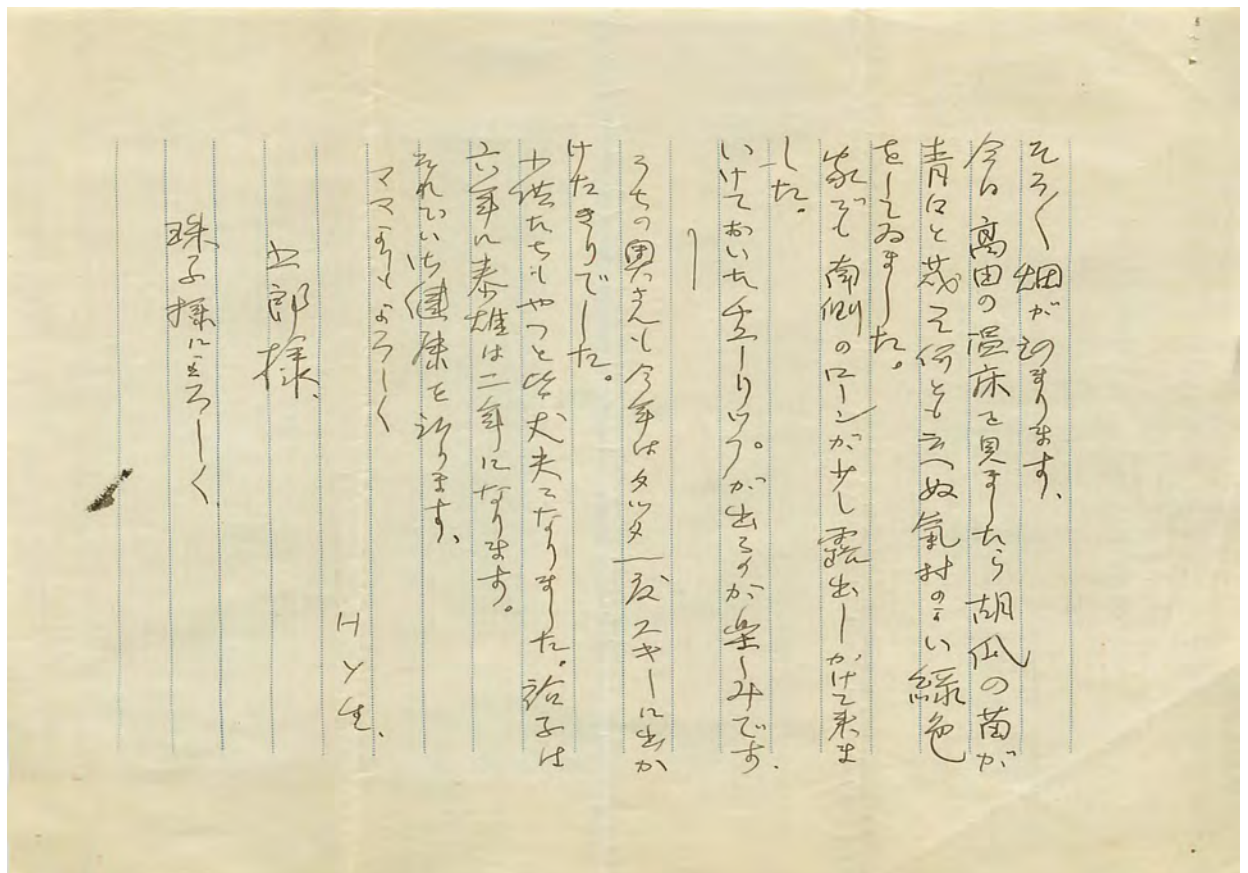 そろ〱畑が始まります、
今日高田の温床を見ましたら胡瓜の苗が
青々と茂って何とも云へぬ気持のいい緑色
をしてゐました。
家でも南側のローンが少し露出しかけて来ま
した。
いけておいたチューリップが出るのが楽しみです.
うちの奥さんも今年はタッタ一度スキーに出か
けたきりでした。
子供たちもやっと皆丈夫になりました。詒子は
六年に泰雄は二年になります。
それでは御健康を祈ります、
ママよりもよろしく
H Y 生、
五郎様、
珠子様によろしく、